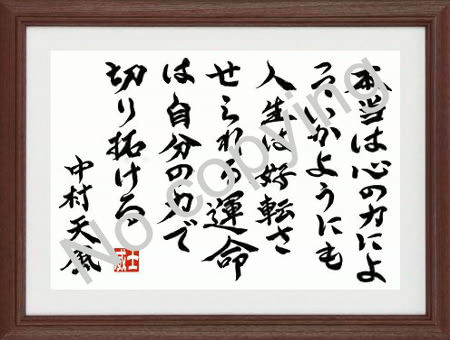 本当は心の力によ
っていかようにも
人生は好転さ
せられる運命
は自分の力で
切り拓ける
中村天風
No copying